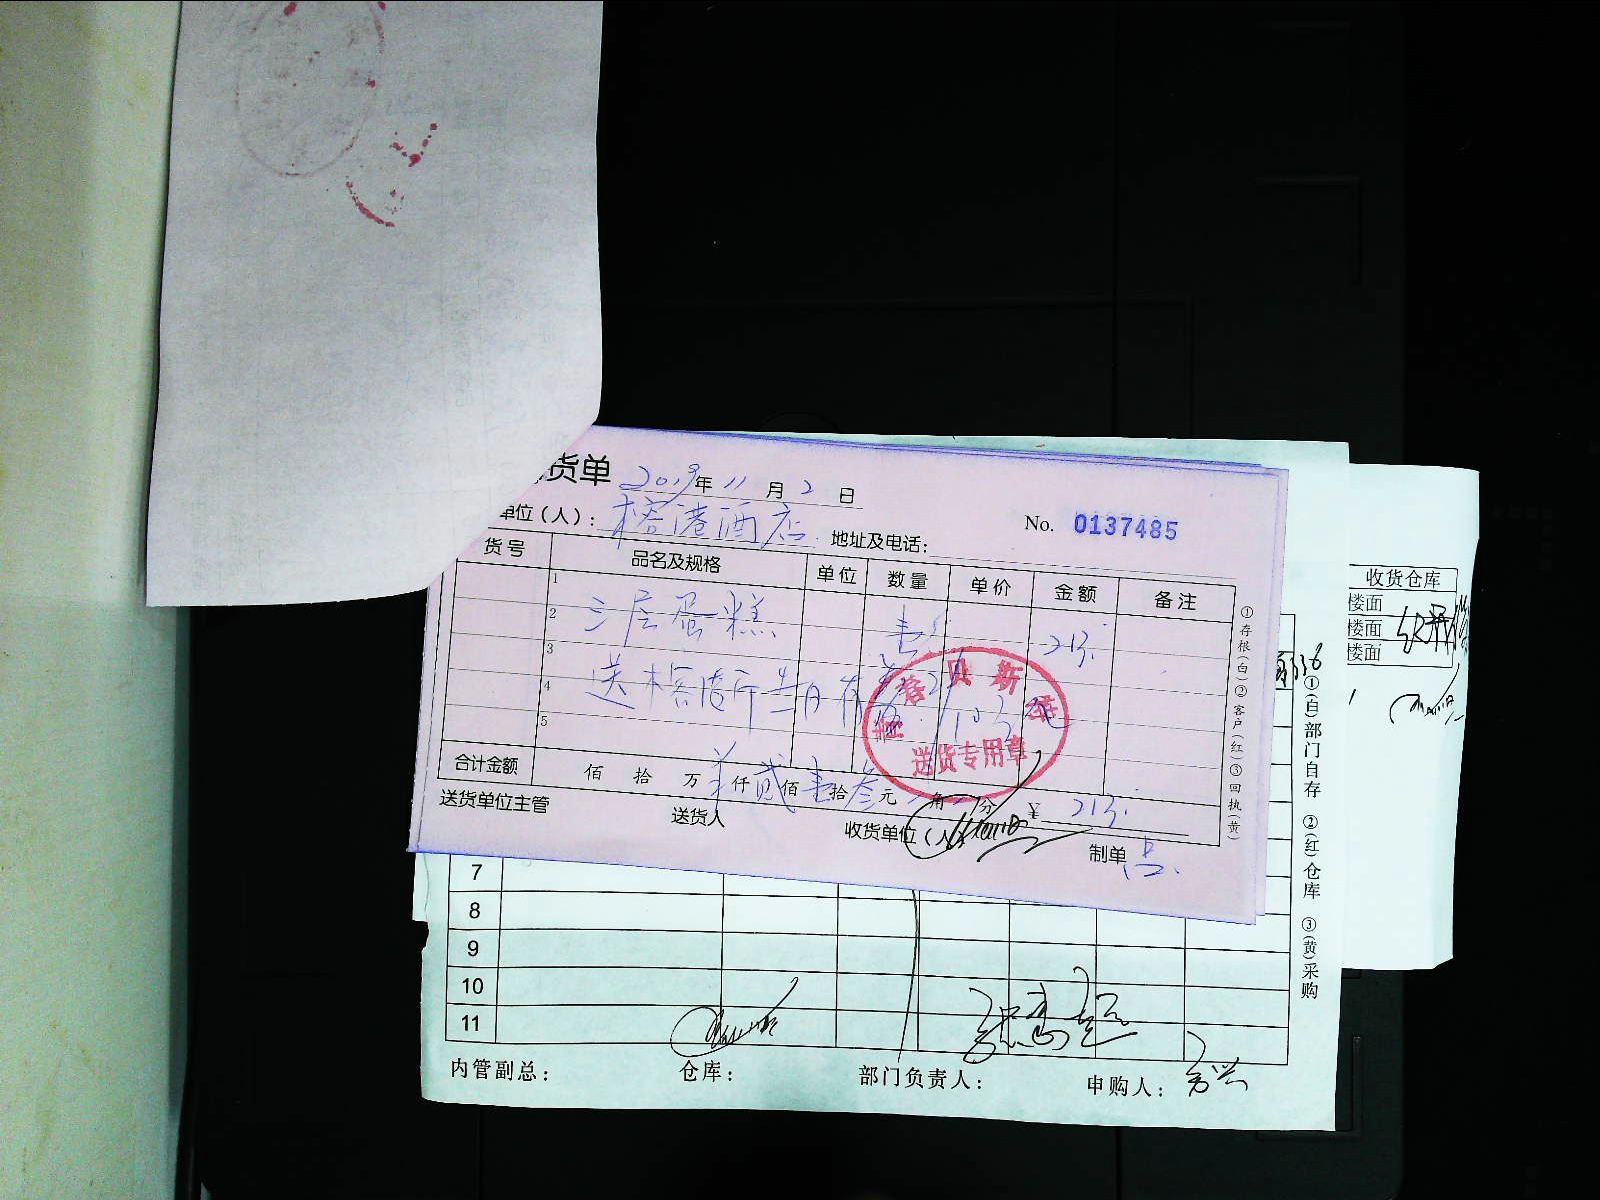 货单 2019年 11 月 2 日
单位（人）： 榕港酒店 地址及电话：
No. 0137485
货号 品名及规格 单位 数量 单价 金额 备注
1
2 三层蛋糕 213.
3
4 送榕港
5
送货专用章
合计金额 佰 拾 万 仟 贰 佰 壹 拾 叁 元 角 分 ¥ 213.
送货单位主管 送货人 收货单位（人）
制单
①存根(白)②客户(红)③回执(黄)
收货仓库
楼面
楼面
楼面
7
8
9
10
11
内管副总： 仓库： 部门负责人： 申购人：
①(白)部门自存 ②(红)仓库 ③(黄)采购